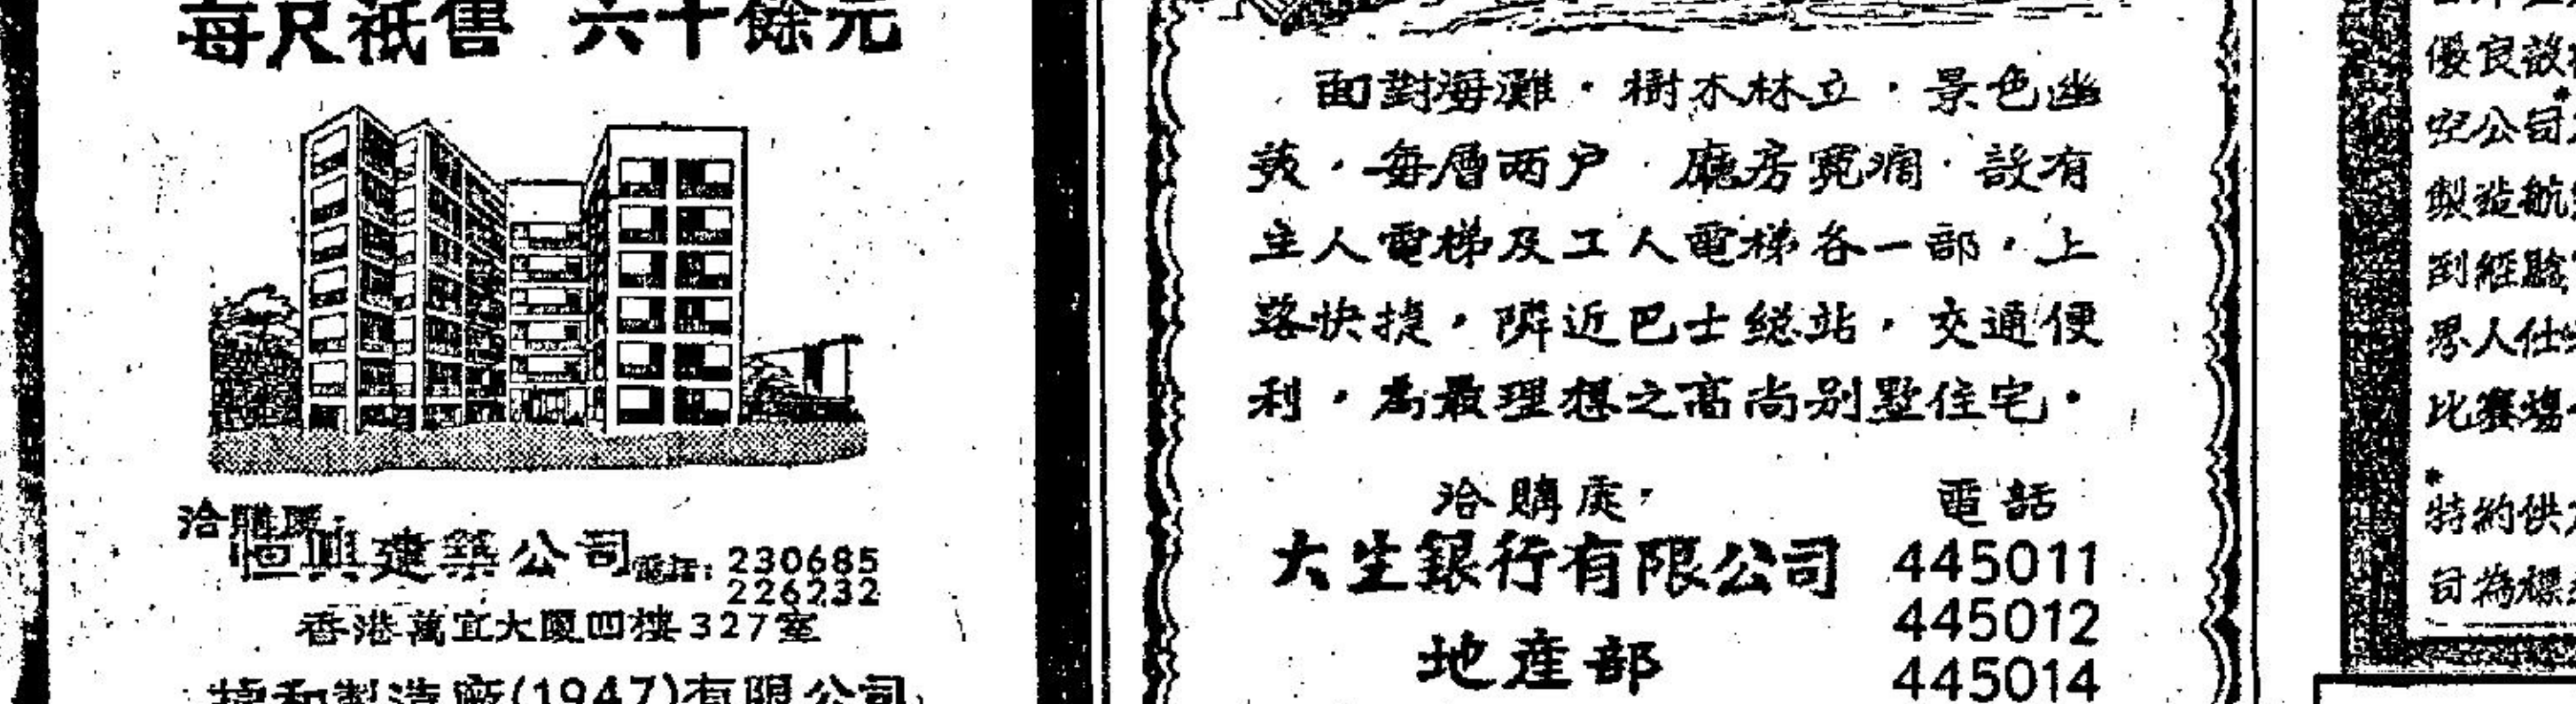 每尺祇售 六十餘元
洽購處：
恒興建築公司 電話：230685
226232
香港萬宜大廈四樓327室
捷和製造廠(1947)有限公司
面對海灘・樹木林立・景色幽
美・每層两户・廳房寬濶・設有
主人電梯及工人電梯各一部・上
落快捷・隣近巴士総站・交通便
利・為最理想之高尚别墅住宅・
洽購處： 電話
大生銀行有限公司 445011
445012
地產部
445014
優良設
空公司
製造航
到經驗
界人仕
比賽場
特約供
司為標